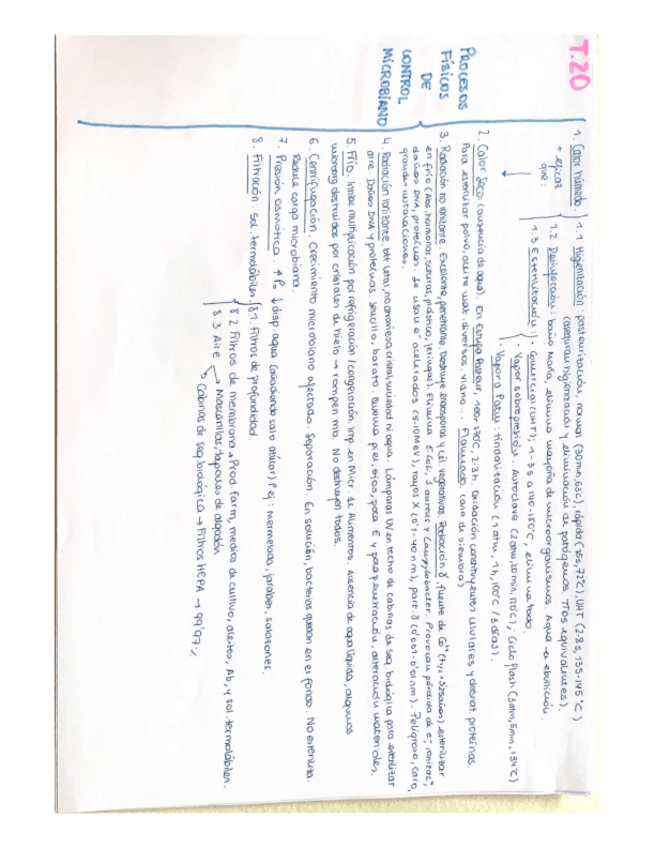 T.20
PROCESOS
FÍSICOS
DE
CONTROL
MICROBIANO
1. Calor húmedo
+ eficaz
que:
1.1 Higienización: pasteurización, normal (30min, 65ºC), rápida (15s, 72ºC), UHT (2-8 s, 135-145 ºC)
(aseguran higienización y eliminación de patógenos. Ttos equivalentes).
1.2 Desinfección: baño María, elimina mayoría de microorganismos. Agua en ebullición.
1.3 Esterilización: · Comercial (UHT); 1-3 s a 140-150ºC, elimina todo.
· Vapor sobrepresión. Autoclave (2atm, 20min, 120ºC); Ciclo flash (3atm, 5min, 134ºC)
· Vapor a Patm: tindalización (1 atm, 1h, 100ºC / 3 días).
2. Calor seco (ausencia de agua). En Estufa Pasteur, 2-3h. Oxidación constituyentes celulares y desnat. proteínas.
Para esterilizar polvo, aceite, mat. diversos, vidrio... Flameado (asa de siembra)
3. Radiación no ionizante. Excelente, penetrante. Destruye endosporas y cél. vegetativas. Radiación γ, fuente de Co⁶⁰ esterilizar
en frío (Abs. hormonas, suturas, plástico, jeringas). Elimina E. coli, S. aureus y Campylobacter. Provocan pérdida de e⁻, ionizac°,
daños DNA, proteínas. Se usan e⁻ acelerados (5-10MeV), rayos X part. γ Peligroso, caro,
grandes instalaciones.
4. Radiación ionizante. letal, no atraviesa cristal, suciedad ni agua. Lámparas UV en techo de cabinas de seg. biológica para esterilizar
aire. Daños DNA y proteínas. Sencillo, barato. Quema piel, ojos, poca E y poca penetración, alteración materiales.
5. Frío. Inhibe multiplicación por refrigeración / congelación. Imp. en Micr. de Alimentos. Ausencia de agua líquida, algunos
microorg destruidos por cristales de hielo → rompen mb. No destruyen todos.
6. Centrifugación. Crecimiento microbiano afectado. Separación. En solución, bacterias quedan en el fondo. No esteriliza.
Reduce carga microbiana.
7. Presión osmótica. ↑Po ↓disp. agua (añadiendo sal o azúcar) P.ej: mermelada, jarabes, salazones.
8. Filtración. Sol. termolábiles
8.1. Filtros de profundidad.
8.2 Filtros de membrana → Prod. farm, medios de cultivo, aceites, Ab, y sol. termolábiles.
8.3 Aire → Mascarillas, tapones de algodón
→ Cabinas de seg. biológica → Filtros HEPA → 99'97%